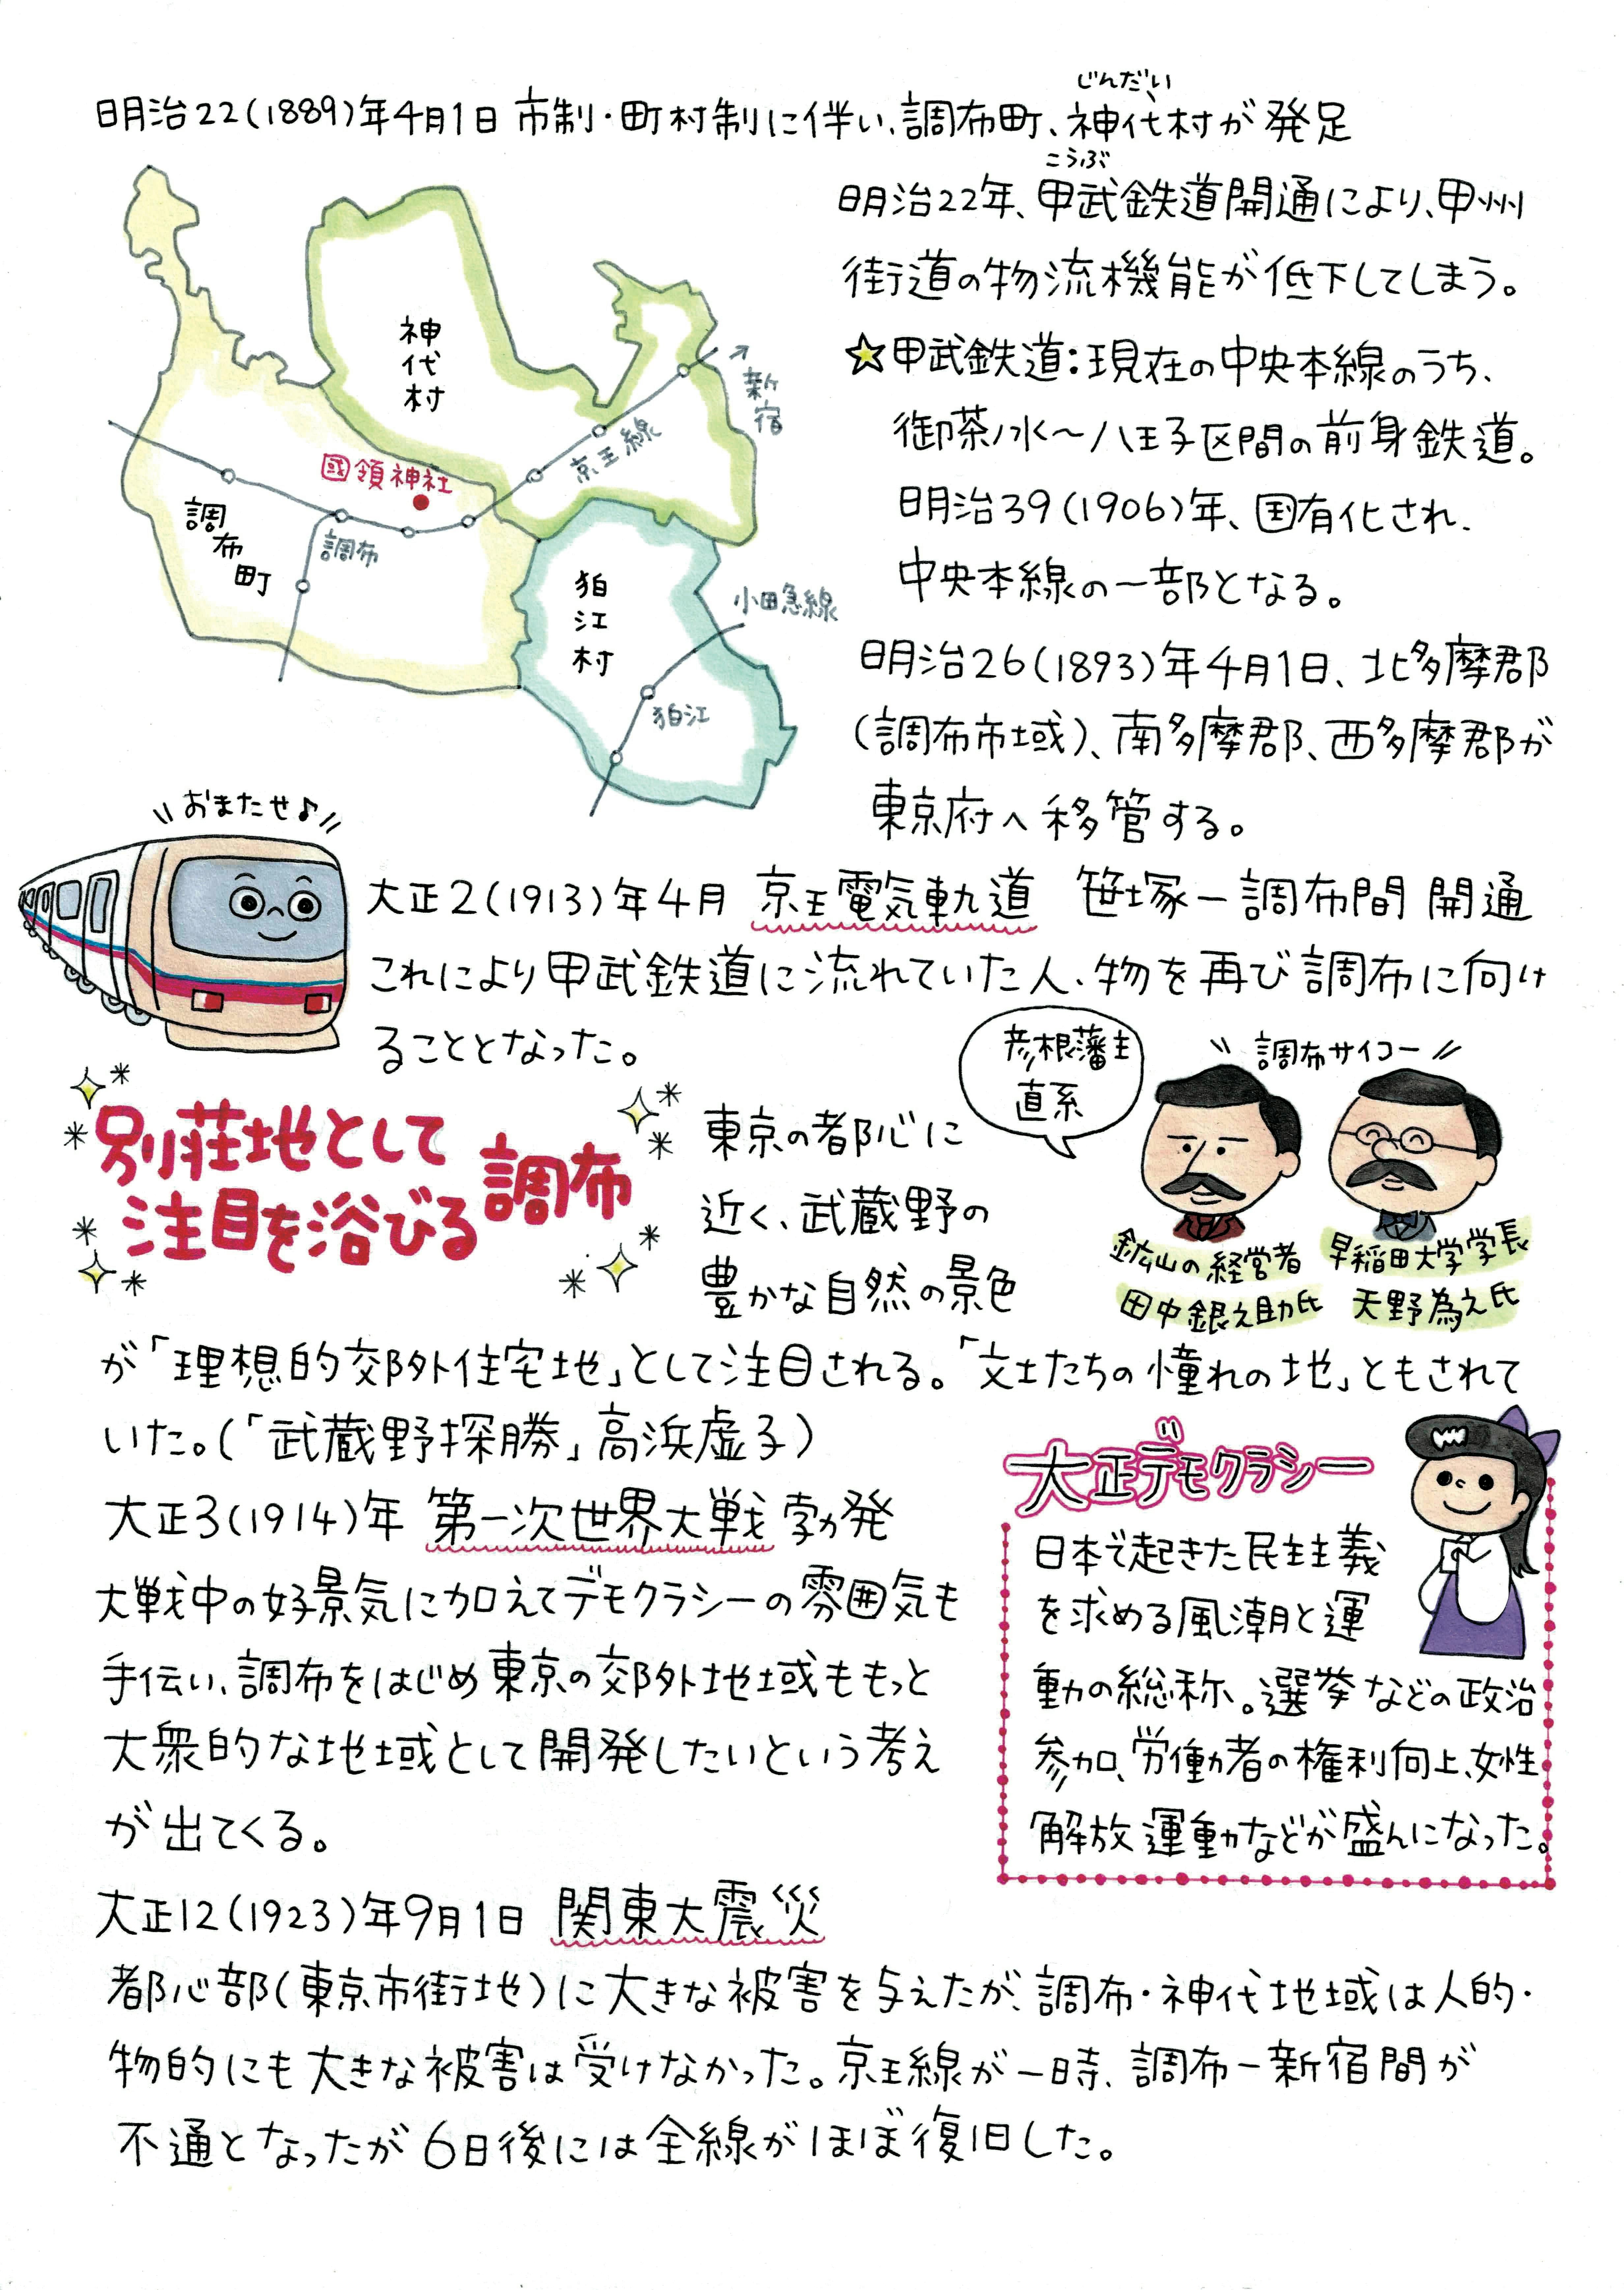 じんだい
明治22(1889)年4月1日 市制・町村制に伴い、調布町、神代村が発足
こうぶ
明治22年、甲武鉄道開通により、甲州
街道の物流機能が低下してしまう。
☆甲武鉄道:現在の中央本線のうち、
御茶ノ水〜八王子区間の前身鉄道。
明治39(1906)年、国有化され、
中央本線の一部となる。
明治26(1893)年4月1日、北多摩郡
(調布市域)、南多摩郡、西多摩郡が
東京府へ移管する。
神代村
新宿
京王線
國領神社
調布町
調布
狛江村
小田急線
狛江
おまたせ♪
大正2(1913)年4月 京王電気軌道 笹塚ー調布間 開通
これにより甲武鉄道に流れていた人、物を再び調布に向け
ることとなった。
別荘地として
注目を浴びる調布
彦根藩主
直系
調布サイコー
鉱山の経営者
田中銀之助氏
早稲田大学学長
天野為之氏
東京の都心に
近く、武蔵野の
豊かな自然の景色
が「理想的郊外住宅地」として注目される。「文士たちの憧れの地」ともされて
いた。(「武蔵野探勝」高浜虚子)
大正3(1914)年 第一次世界大戦 勃発
大戦中の好景気に加えてデモクラシーの雰囲気も
手伝い、調布をはじめ東京の郊外地域ももっと
大衆的な地域として開発したいという考え
が出てくる。
大正デモクラシー
日本で起きた民主主義
を求める風潮と運
動の総称。選挙などの政治
参加、労働者の権利向上、女性
解放運動などが盛んになった。
大正12(1923)年9月1日 関東大震災
都心部(東京市街地)に大きな被害を与えたが、調布・神代地域は人的・
物的にも大きな被害は受けなかった。京王線が一時、調布ー新宿間が
不通となったが6日後には全線がほぼ復旧した。